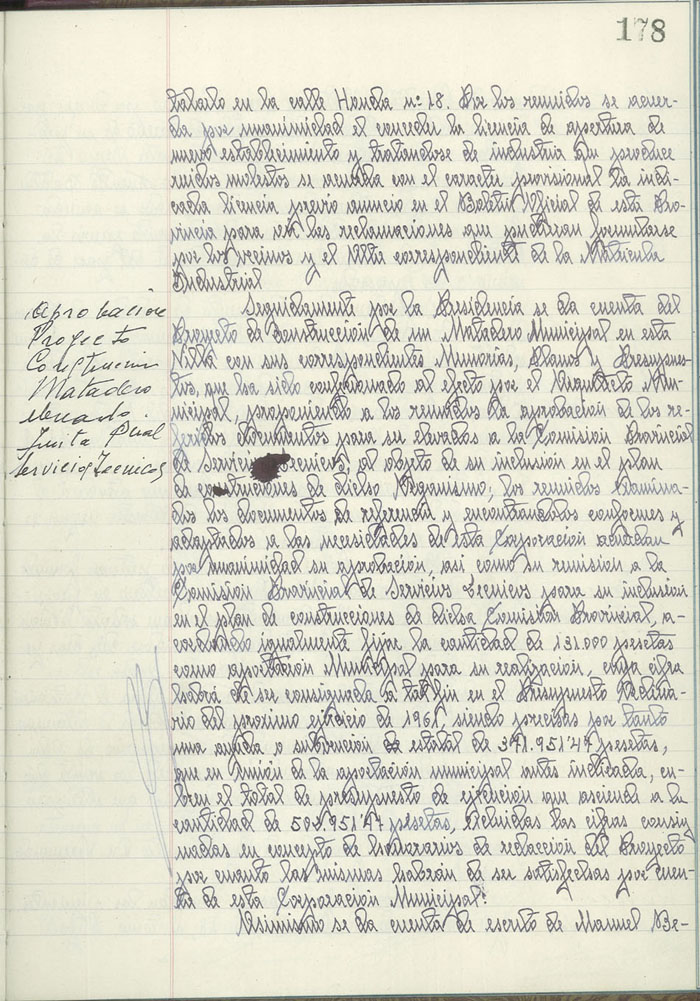 178
talarlo en la calle Honda nº 18. Por los reunidos se acuer-
da por unanimidad el conceder la licencia de apertura de
nuevo establecimiento y tratandose de industria que produce
ruidos molestos se acuerda con el caracter provisional la indi-
cada licencia previo anuncio en el Boletin Oficial de esta Pro-
vincia para oir las reclamaciones que pudieran formularse
por los vecinos y el correspondiente de la Matricula
Industrial
Aprobacion
Proyecto
Construccion
Matadero
Junta Pual
Servicios Tecnicos
Seguidamente por la Presidencia se da cuenta del
Proyecto de construccion de un Matadero Municipal en esta
Villa con sus correspondientes Memorias, Planos y Presupues-
tos, que ha sido confeccionado al efecto por el Arquitecto Mu-
nicipal, proponiendo a los reunidos la aprobacion de los re-
feridos documentos para su elevados a la Comision Provincial
de Servicios Tecnicos, al objeto de su inclusion en el plan
de construciones de dicho Organismo; los reunidos examina-
dos los documentos de referencia y encontrandolos conformes y
adaptados a las necesidades de esta Corporacion acuerdan
por unanimidad su aprobación, asi como su remision a la
Comision Provincial de Servicios Tecnicos para su inclusion
en el plan de construcciones de dicha Comision Provincial, a-
cordando igualmente fijar la cantidad de 131.000 pesetas
como aportacion Municipal para su realización, cuya cifra
habrá de ser consignada en el Presupuesto Ordina-
rio del proximo ejercicio de 1961, siendo precisas por tanto
una ayuda o subvencion estatal de 371.951'47 pesetas,
que en Union de la aportacion municipal antes indicada, cu-
bren el total de presupuesto de ejecucion que asciende a la
cantidad de 502.951'47 pesetas, excluidas las cifras consig-
nadas en concepto de honorarios de redaccion del Proyecto
por cuanto las mismas habran de ser satisfechas por cuen-
ta de esta Corporacion Municipal.
Asimismo se da cuenta de escrito de Manuel Be-